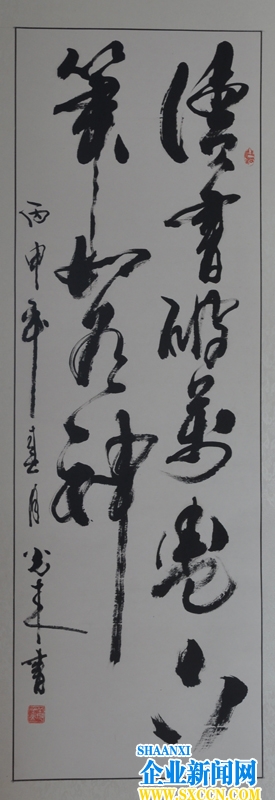 读书破万卷下
笔如有神
丙申年春月光来书
SHAANXI
企业新闻网
WWW.SXCCN.COM